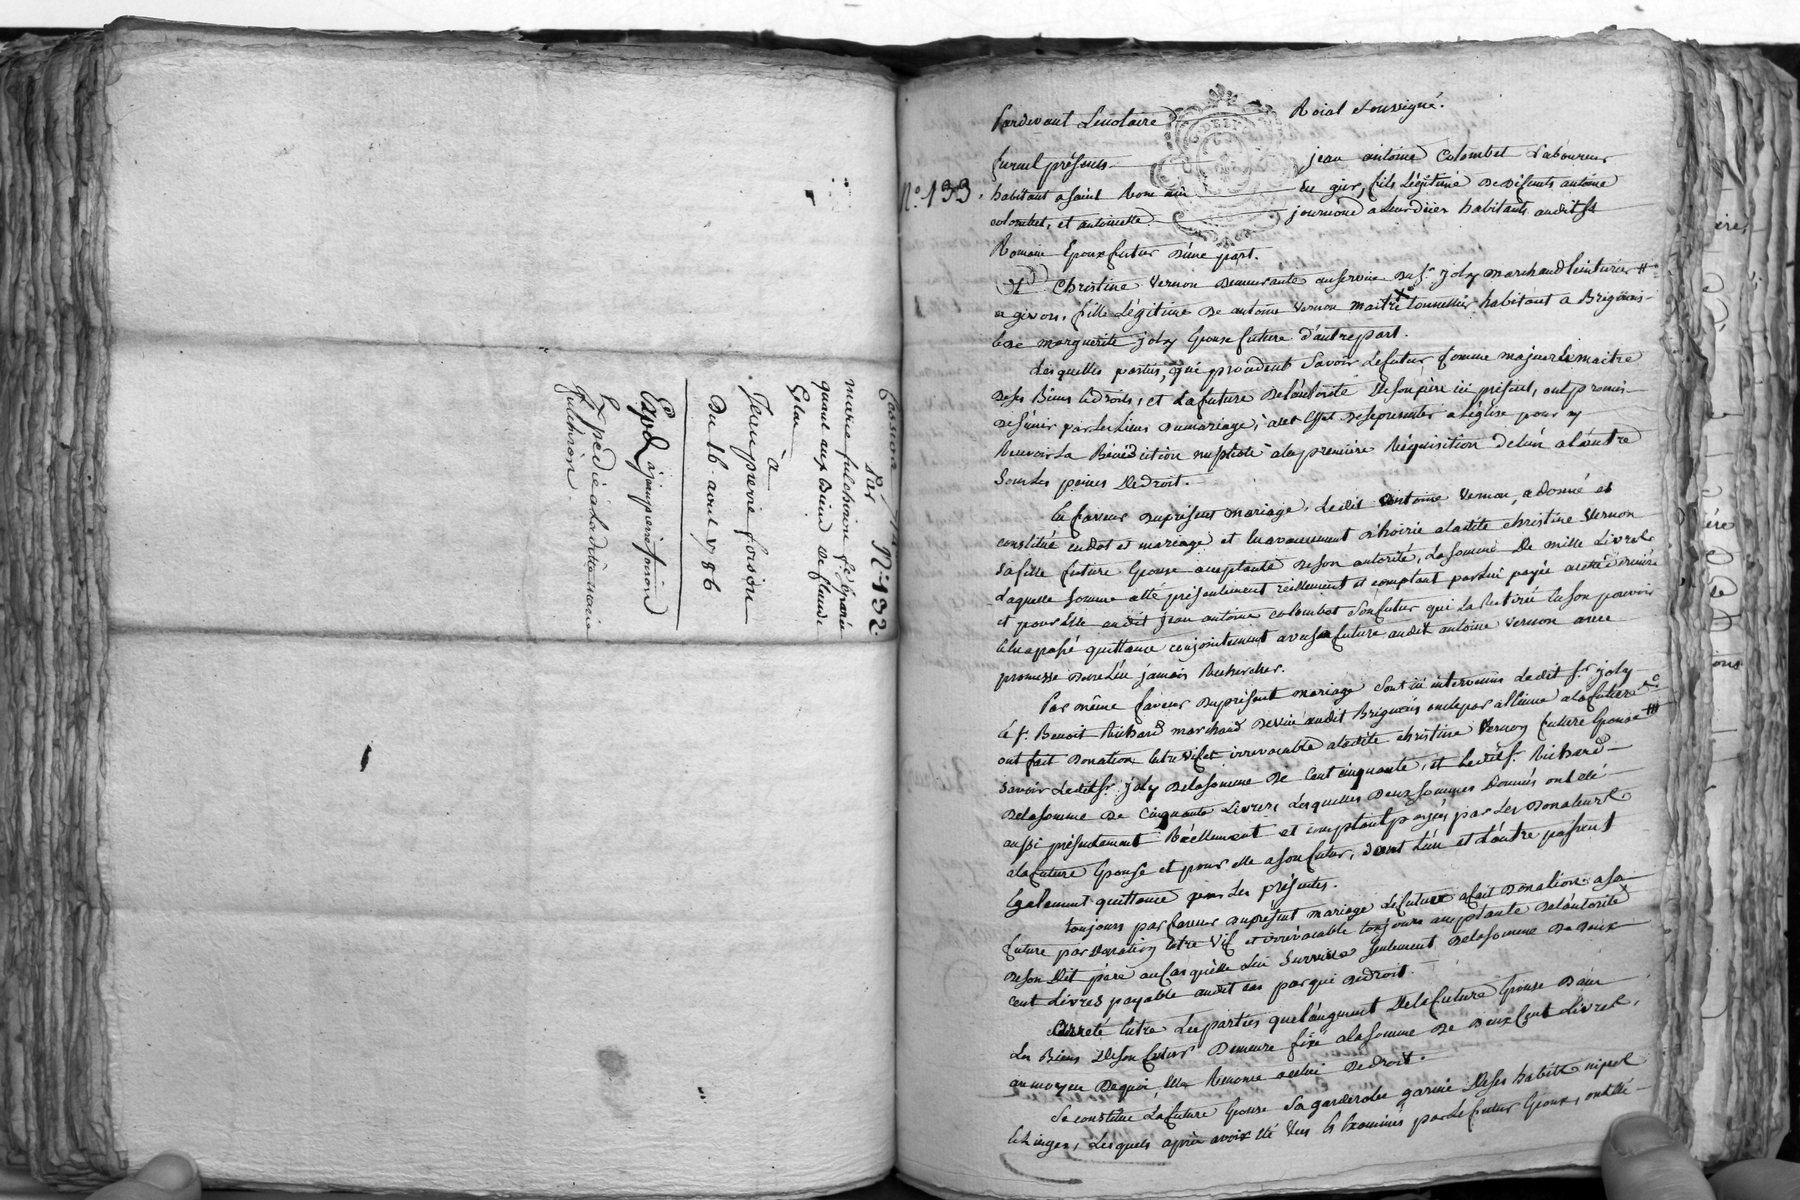 N.° 132.
Cession
Par
marie fulchiron f.e séparée
quant aux biens de fleurdi
Glas
à
Jeanpierre forison
Du 16. avril 1786
Exp.d à jeanpierre forison
Expédié à ladite marie
fulchiron
N.° 133.
Pardevant Le notaire Roial soussigné.
furent présents jean antoine Colombet Laboureur
habitant a saint Romain en gier, fils Légitime de défunts antoine
colombet, et antoinette journoud a leur décès habitants audit St
Romain Epoux futur d'une part.
Et Christine Vernon demeurante au service du Sr. joly marchand teinturier
a givors, fille Légitime de antoine Vernon maitre tonnellier habitant a Brignais
& de marguerite joly Epouse future d'autre part.
Lesquelles parties, qui procedent Savoir Le futur comme majeur & maitre
de ses Biens & droits, et La future de L'autorité de son père ici présent, ont promis
de s'unir par les Liens du mariage, à cet Effet de se présenter a L'église pour y
Recevoir La Bénédiction nuptiale à La première Réquisition de L'un a L'autre
Sous Les peines de droit.
En faveur du présent mariage, Ledit antoine Vernon a donné et
constitué en dot et mariage et en avancement d'hoirie a Ladite christine Vernon
sa fille future Epouse acceptante de son autorité, La somme de mille Livres
Laquelle somme a été présentement réellement et comptant par Lui payée a cette derniere
et pour Elle audit jean antoine colombet son futur qui L'a Retirée En son pouvoir
& En a passé quittance conjointement avec sa future audit antoine Vernon avec
promesse de ne L'en jamais Rechercher.
Par même faveur du présent mariage sont ici intervenus Ledit Sr joly
& Sr. Benoit Richard marchand demeurant audit Brignais oncle par alliance a La future
ont fait Donation Entre vif et irrevocable a Ladite christine Vernon future Epouse
savoir Ledit Sr. joly de La somme de Cent cinquante, et Ledit Sr. Richard
de La somme de Cinquante Livres, Lesquelles deux sommes données ont été
aussi présentement Réellement et comptant payées par Les Donateurs
a La future Epouse et pour elle a son futur, dont L'un et L'autre passent
Egalement quittance par Les présentes.
toujours par faveur du présent mariage Le futur a fait Donation a sa
future par donation Entre Vif et irrévocable toujours acceptante de L'autorité
de son dit père au cas qu'elle Lui Survive seulement de La somme de deux
cent Livres payable audit cas par qui de droit.
Arreté Entre Les parties que L'augment de La future Epouse dans
Les Biens de son futur Demeure fixé a La somme de deux Cent Livres,
au moyen de quoi Elle Renonce a celui de droit.
Se constitue La future Epouse Sa garderobe garnie de ses habits nipes
& Linges, Lesquels après avoir été Vus & Examinés par Le futur Epoux, ont été